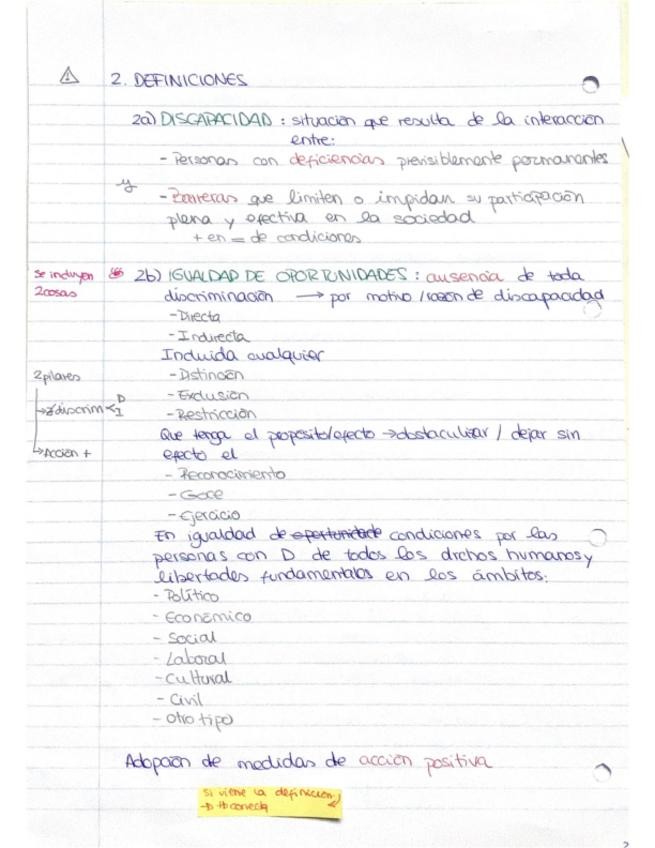 2. DEFINICIONES
2a) DISCAPACIDAD : situación que resulta de la interacción
entre:
- Personas con deficiencias previsiblemente permanentes
y
- Barreras que limiten o impidan su participación
plena y efectiva en la sociedad
+ en = de condiciones
Se incluyen
2 cosas
2b) IGUALDAD DE OPORTUNIDADES : ausencia de toda
discriminación → por motivo / razón de discapacidad
- Directa
- Indirecta
Incluida cualquier
2 pilares
- Distinción
- Exclusión
discrim < D
I
- Restricción
Que tenga el propósito/efecto → obstaculizar / dejar sin
efecto el
→ Acción +
- Reconocimiento
- Goce
- Ejercicio
En igualdad de oportunidade condiciones por las
personas con D de todos los drchos humanos y
libertades fundamentales en los ámbitos:
- Político
- Económico
- Social
- Laboral
- Cultural
- Civil
- Otro tipo
Adopción de medidas de acción positiva
Si viene la definición
2